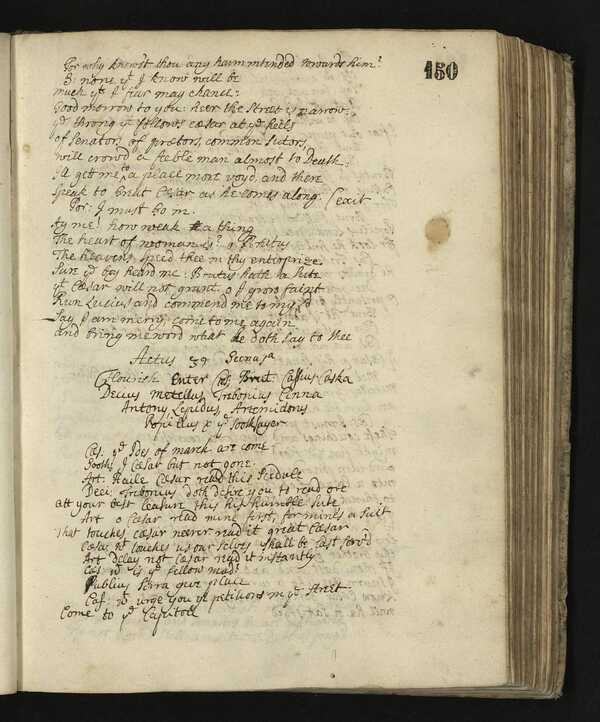 450
Por: why knowst thou any harm intended towards him?
S: none yt I know will be
much yt I fear may chance:
Good morrow to you: heer the street is narrow:
ye throng yt follows cæsar at ye heels
of Senators of prætors, common sutors,
will crowd a feeble man almost to Death:
Ile gett me to a place more voyd, and there
Speak to Great Cæsar as he comes along. (exit
Por: I must go in.
Ay me! how weak a thing
The heart of woman is? o Brutus
The heavens speed thee in thy enterprize.
Sure ye boy heard me: Brutus hath a sute
yt Cæsar will not grant. o I grow faint
Run Lucius and commend me to my Ld
Say I am merry, come to me again
and bring me word what he doth say to thee
Actus 3s Scena 1a
Flourish Enter Cæs, Brut: Cassius Caska
Decius metellus Trebonius Cinna
Antony Lepidus, Artemidorus
Popillus & ye Soothsayer
Cæs: ye Ides of march are come
Sooth: I Cæsar but not gone.
Art: Haile Cæsar read this Scedule
Deci: Trebonius doth desire you to read ore
att your best leasure this his humble sute
Art o Cæsar read mine first, for mines a suit
That touches cæsar nearer read it great Cæsar
Cæs: wt touches us our selves shall be last serv'd
Art Delay not Cæsar read it instantly
Cæs: wt is ye fellow mad?
Publius Sirra give place
Cas: wt urge you yr petitions in ye street
Come to ye Capitoll